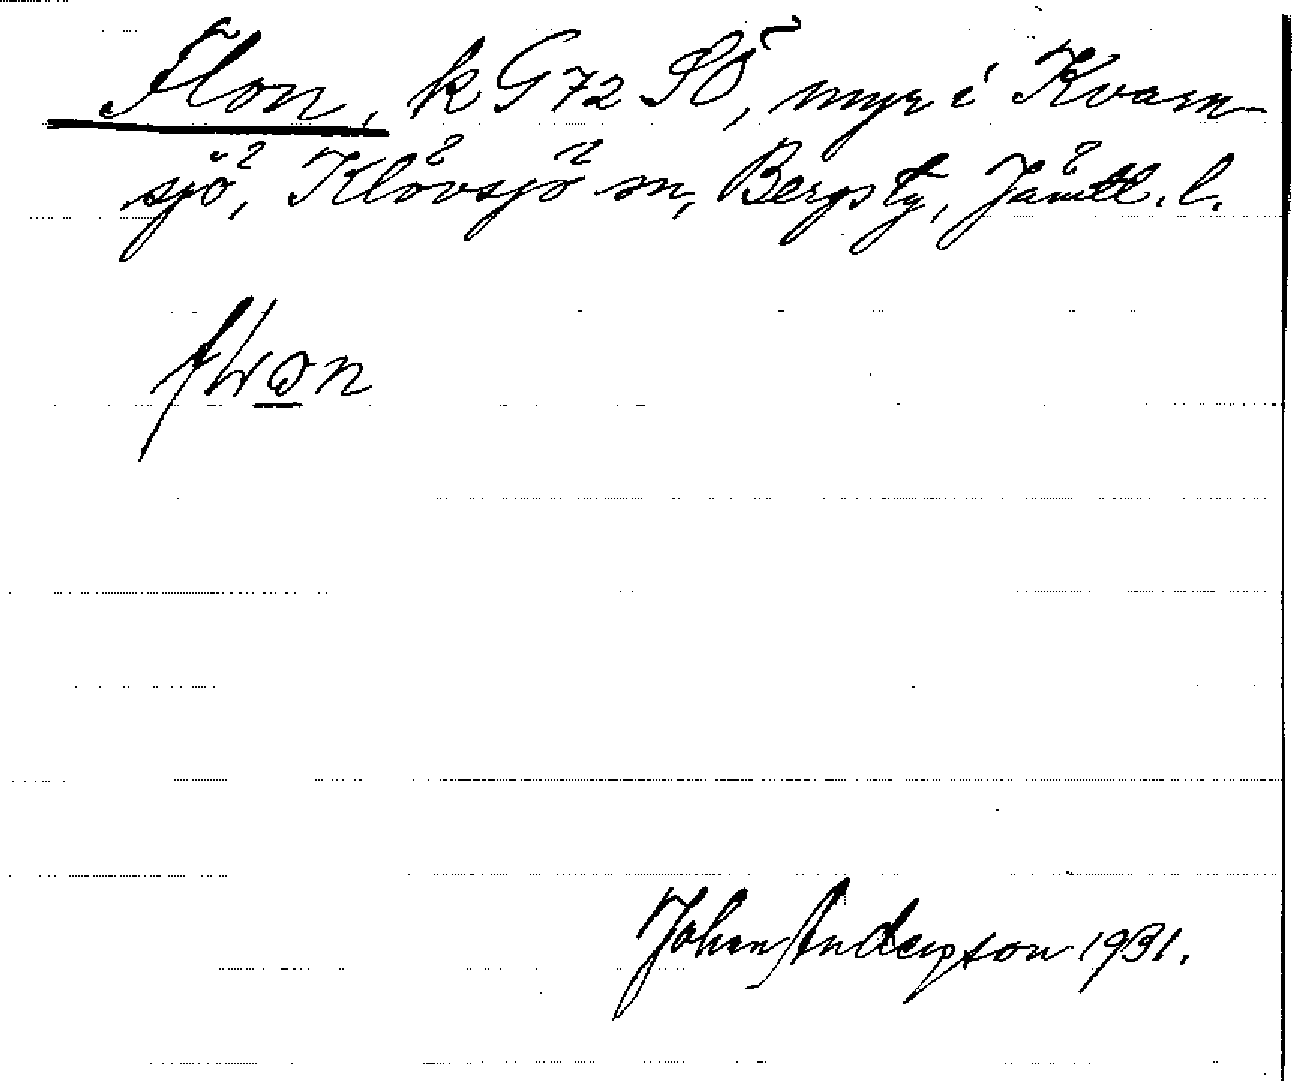 Flon, k G72 SÖ, myr i Kvarn-
sjö, Klövsjö sn, Bergs tg, Jämtl. l.
flon
Johan Anderson 1931.